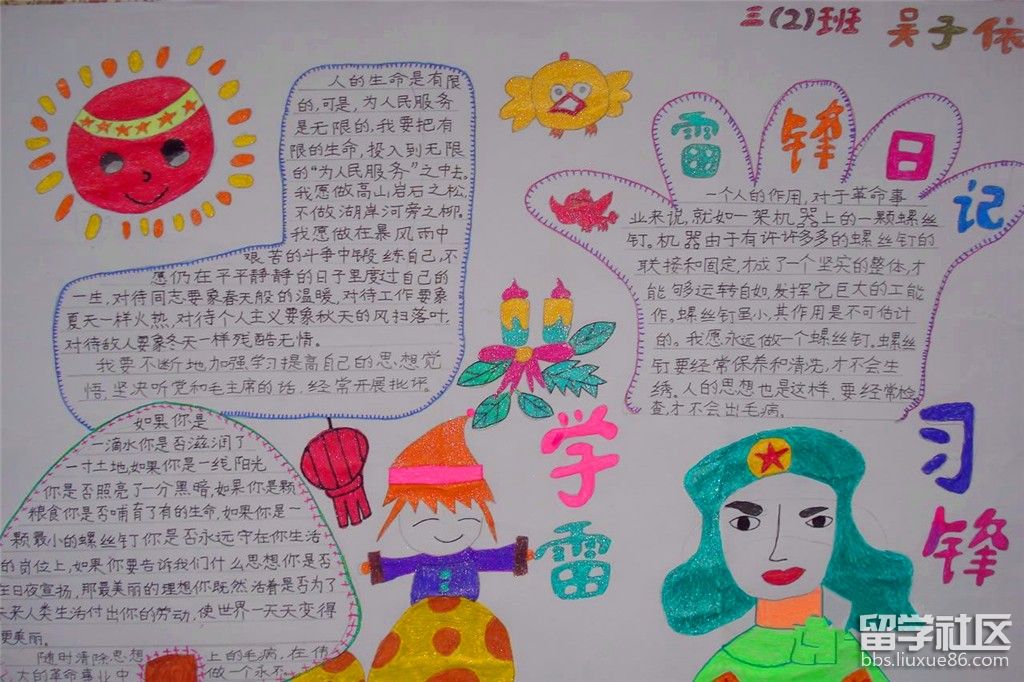 三(2)班 吴子依
人的生命是有限
的,可是,为人民服务
是无限的,我要把有
限的生命,投入到无限
的“为人民服务”之中去。
我愿做高山岩石之松,
不做湖岸河旁之柳。
我愿做在暴风雨中
艰苦的斗争中锻练自己,不
愿仍在平平静静的日子里度过自己的
一生,对待同志要象春天般的温暖,对待工作要象
夏天一样火热,对待个人主义要象秋天的风扫落叶,
对待敌人要象冬天一样残酷无情。
我要不断地加强学习提高自己的思想觉
悟,坚决听党和毛主席的话,经常开展批评
雷锋日记
一个人的作用,对于革命事
业来说,就如一架机器上的一颗螺丝
钉。机器由于有许许多多的螺丝钉的
联接和固定,才成了一个坚实的整体,才
能够运转自如,发挥它巨大的工能
作。螺丝钉虽小,其作用是不可估计
的。我愿永远做一个螺丝钉。螺丝
钉要经常保养和清洗,才不会生
绣。人的思想也是这样,要经常检
查,才不会出毛病。
学习
雷锋
如果你是
一滴水你是否滋润了
一寸土地,如果你是一线阳光
你是否照亮了一分黑暗,如果你是颗
粮食你是否哺育了有的生命,如果你是一
颗最小的螺丝钉你是否永远守在你生活
的岗位上,如果你要告诉我们什么思想你是否
在日夜宣扬,那最美丽的理想你既然活着是否为了
未来人类生活付出你的劳动,使世界一天天变得
更美丽。
随时清除思想上的毛病,在伟
大的革命事业中做一个永不
留学社区
bbs.liuxue86.com